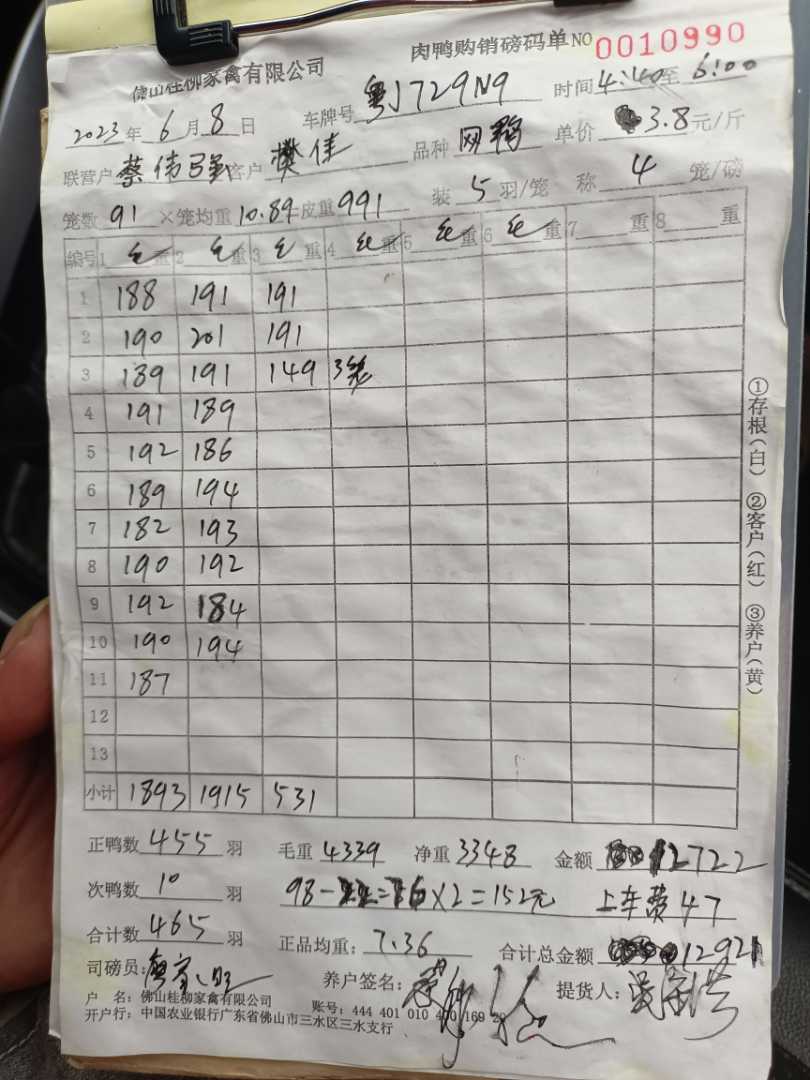 肉鸭购销磅码单 NO 0010990
佛山桂柳家禽有限公司
2023年6月8日 车牌号 粤J729N9 时间 4:40至6:00
联营户 蔡伟强 客户 樊佳 品种 网鸭 单价 3.8元/斤
笼数 91 ×笼均重 10.89 皮重 991 装 5 羽/笼 称 4 笼/磅
编号 1 毛重 2 毛重 3 毛重 4 毛重 5 毛重 6 毛重 7 重 8 重
1 188 191 191
2 190 201 191
3 189 191 149 3笼
4 191 189
5 192 186
6 189 194
7 182 193
8 190 192
9 192 184
10 190 194
11 187
12
13
小计 1893 1915 531
正鸭数 455 羽 毛重 4339 净重 3348 金额 12722
次鸭数 10 羽 98- = ×2=152元 上车费 47
合计数 465 羽 正品均重: 7.36 合计总金额 12921
司磅员: 养户签名: 提货人:
户 名: 佛山桂柳家禽有限公司 账号: 444 401 010 400 169
开户行: 中国农业银行广东省佛山市三水区三水支行
①存根(白) ②客户(红) ③养户(黄)